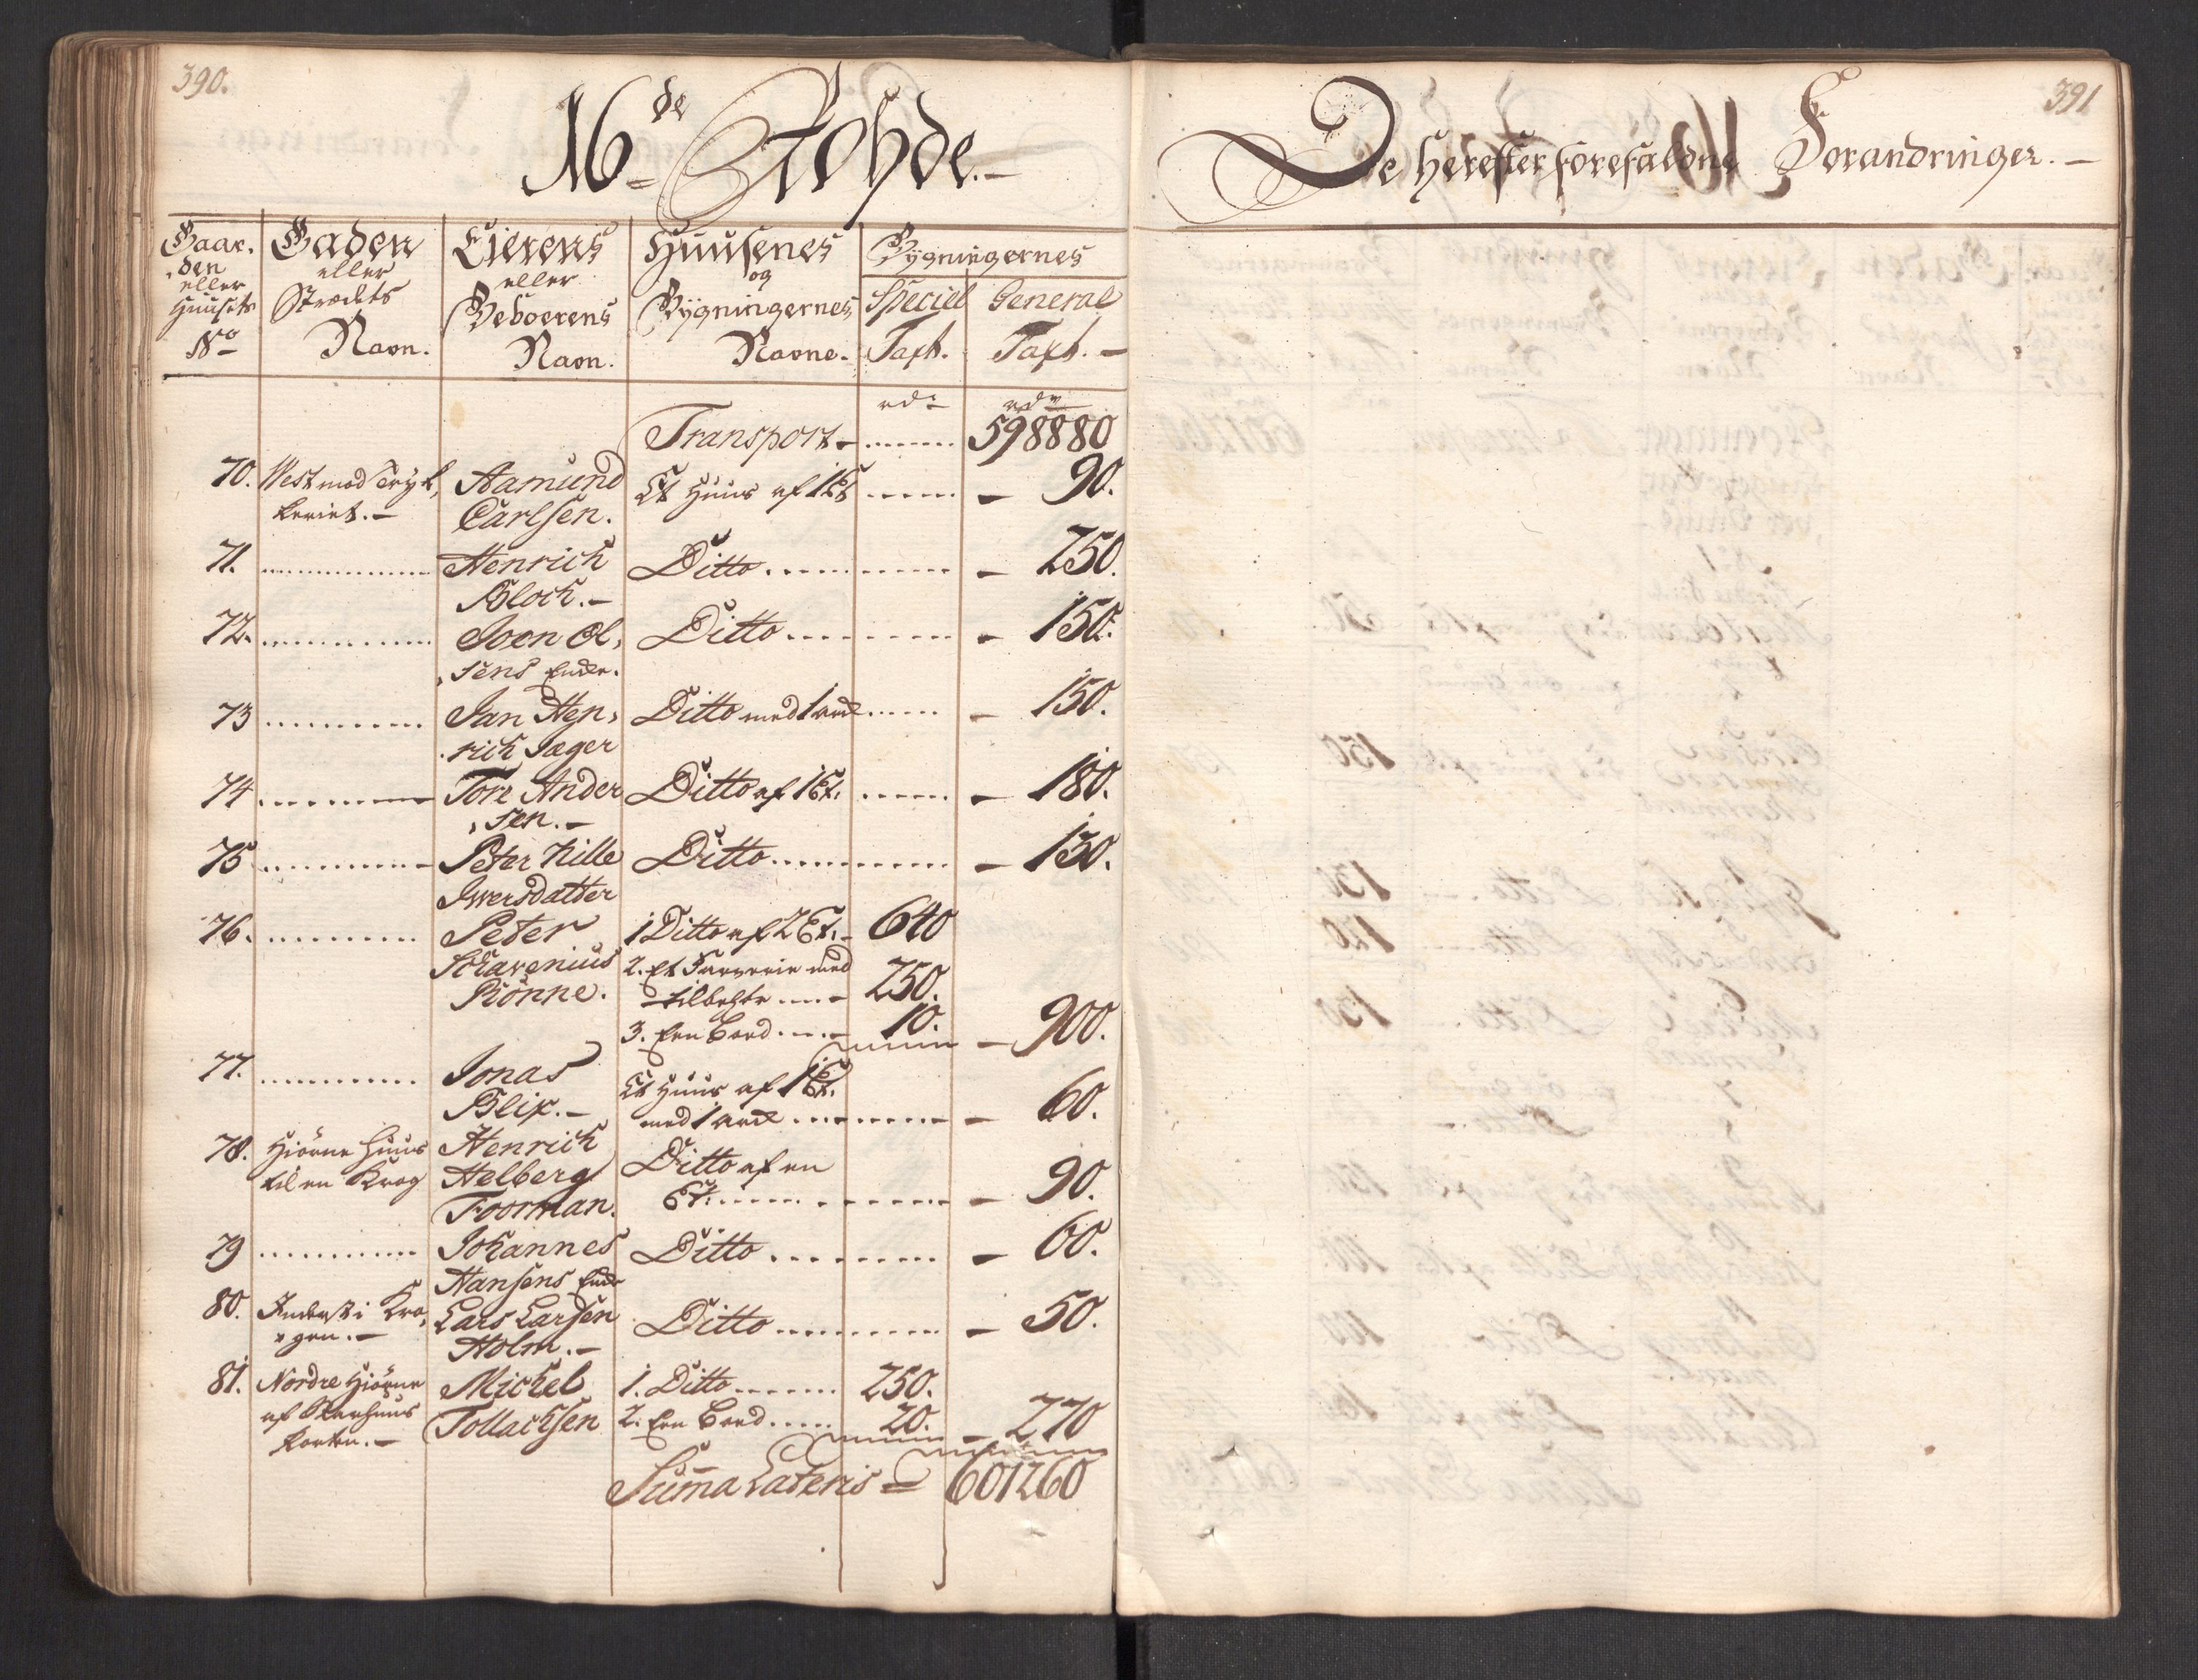 390.
16de Rohde.
Gaar,
den
eller
Huusets
No
Gaden
eller
Strædets
Navn.
Eierens
eller
Beboerens
Navn.
Huusenes
og
Bygningernes
Navne.
Bygningernes
Speciel
Taxt.
General
Taxt.
rdr
rdr
Transport 598880
70. West mod Aamund Et Huus af 1 Et 90.
Carlsen.
71. Henrich Ditto 250.
Bloch.
72. Joen Ol, Ditto 150.
sens Enke.
73 Jan Hen, Ditto med 1 150.
rich Jæger
74 Tore Ander Ditto af 1 Et. 180.
sen.
75 Peter Nille Ditto 130.
Iversdatter
76. Peter 1 Ditto af 2 Et. 640
Schavenius 2. Et Farverie med
Rönne. tilbehör 250.
3. Een Boed 10. 900.
77. Jonas Et Huus af 1 Et.
Blix. med 1 60.
78. Hiörne Huus Henrich Ditto af en
til en Krog Helberg Et. 90.
Foorman.
79 Johannes Ditto 60.
Hansens Enke
80. Inderst i Kro, Lars Larsen Ditto 50.
gen. Holm.
81. Nordre Hiörne Michel 1. Ditto 250.
af Tollachsen 2. Een Boed 20. 270
Summa Lateris 601260
391
De Herefter forefaldne Forandringer.